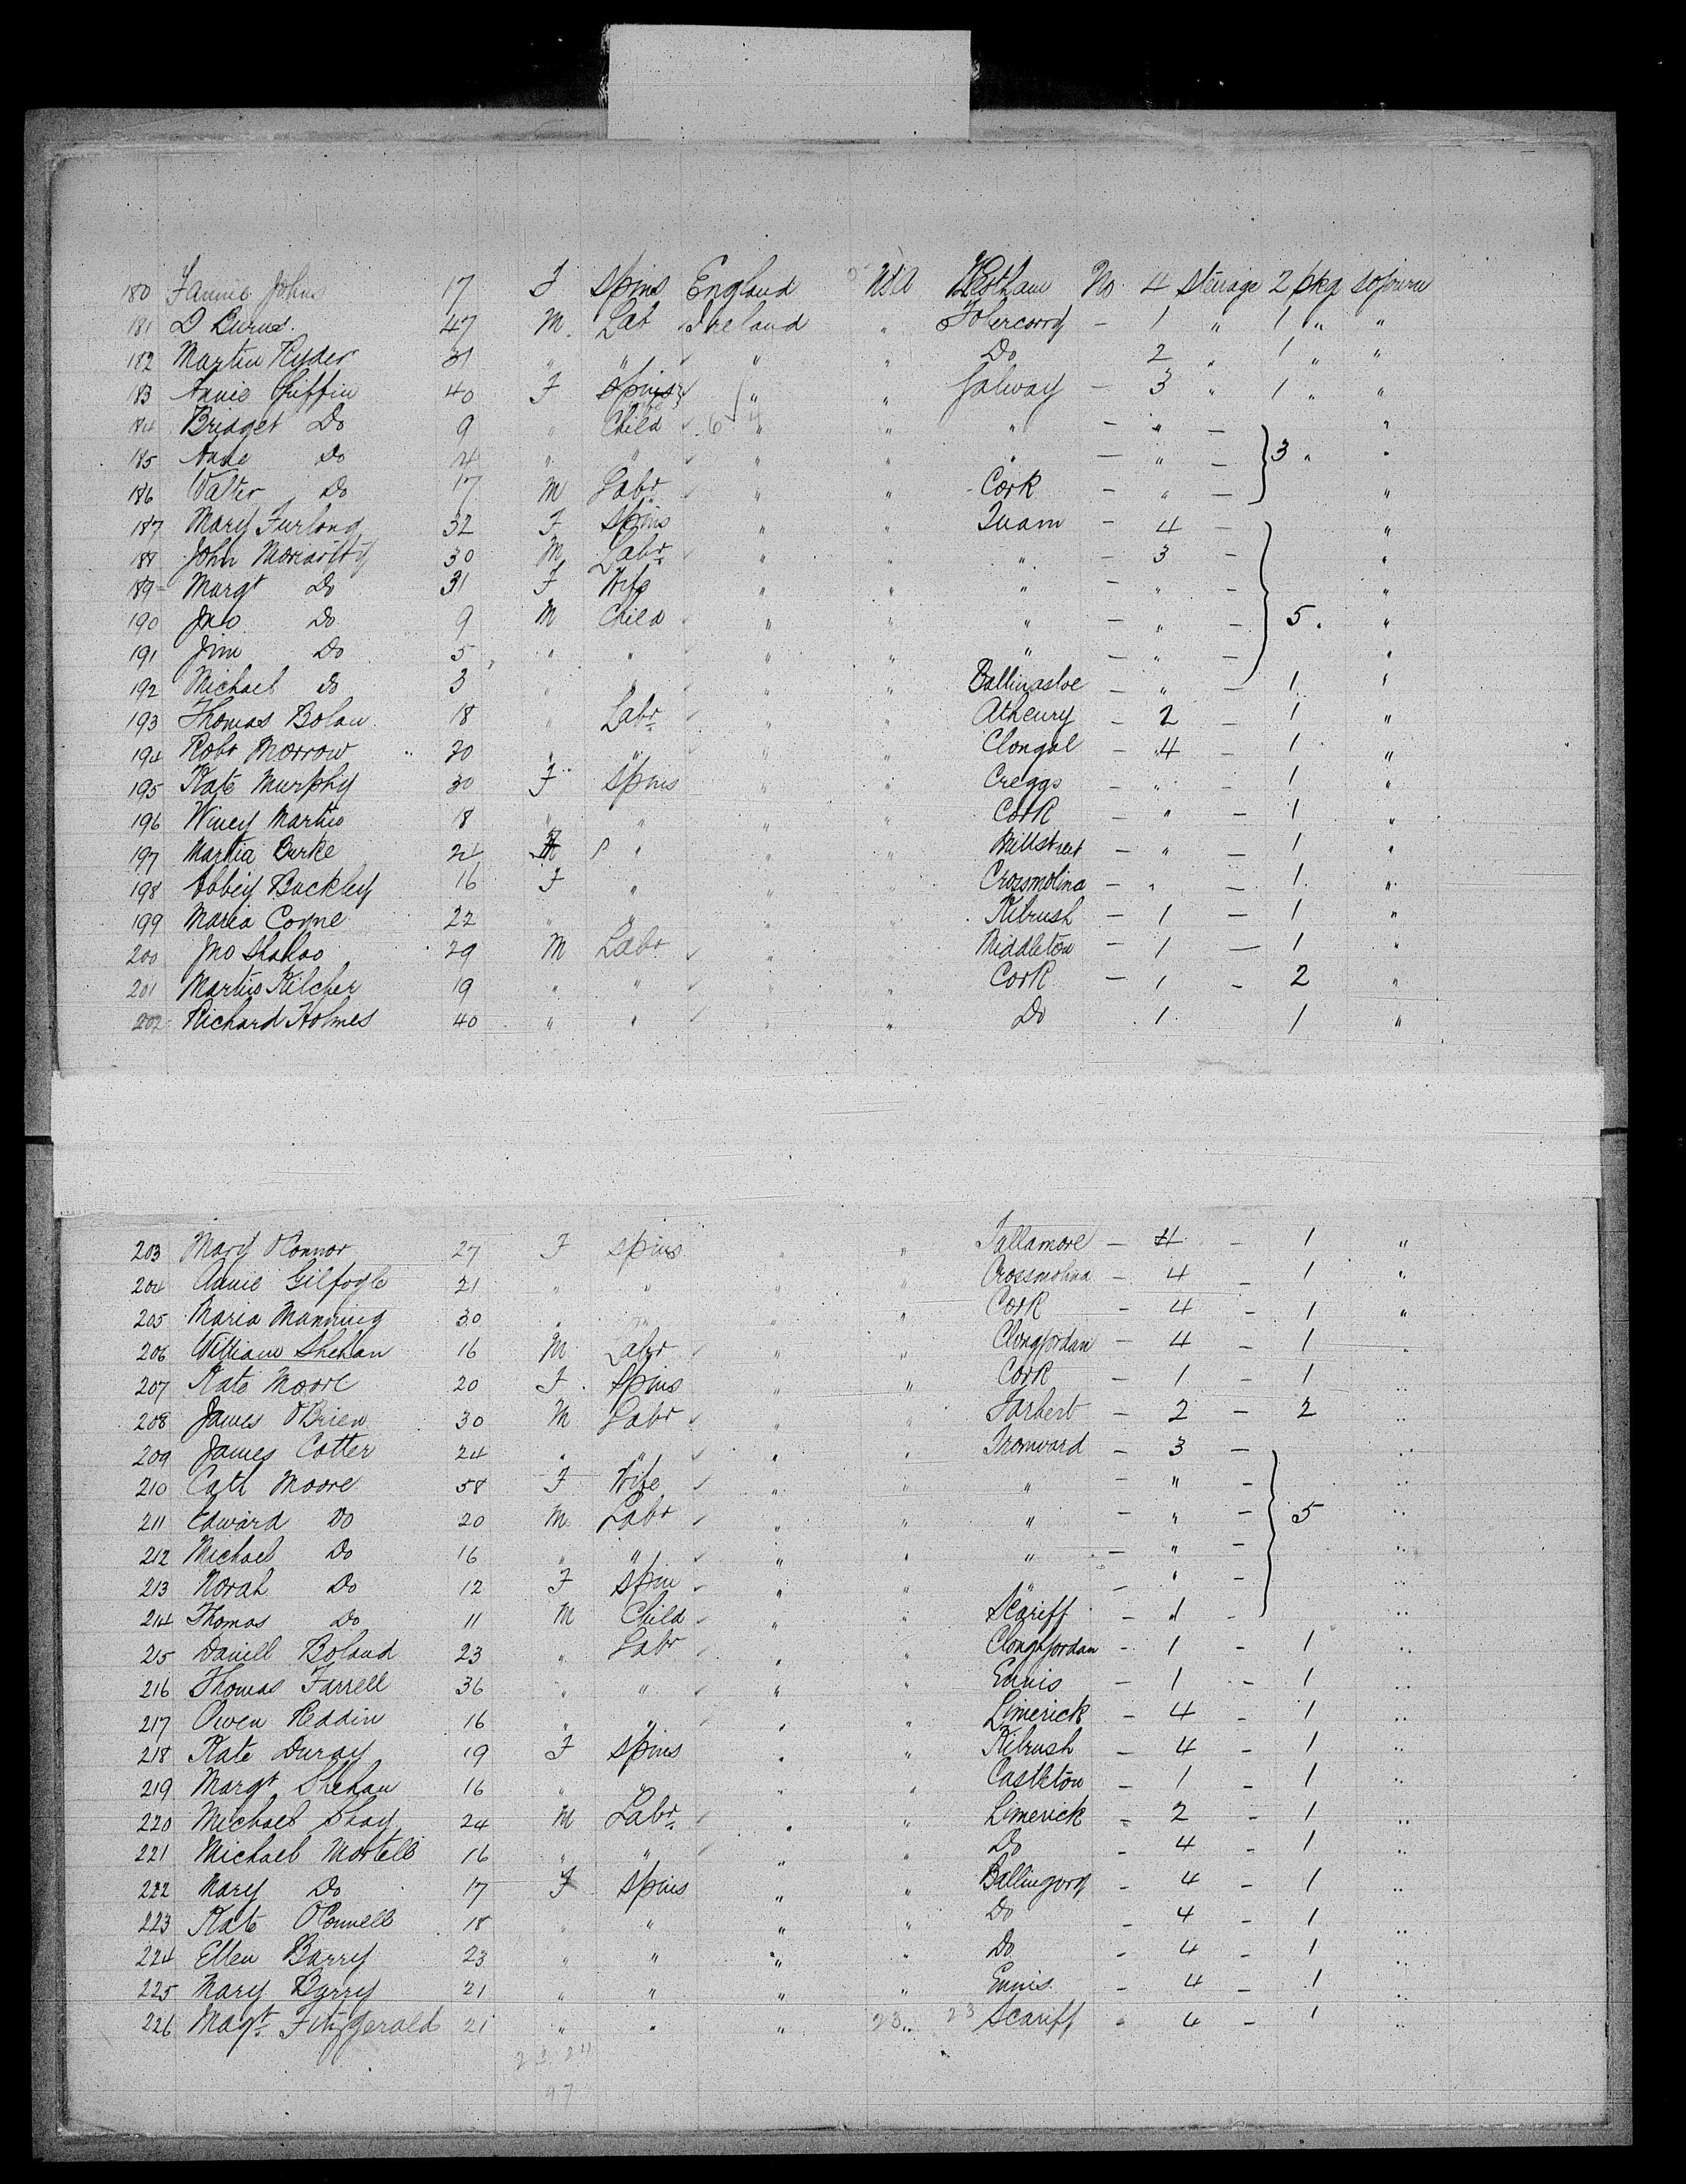 180 Fannie Johns 17 F Spins England USA Westham No 4 Steirage 2 pkg sojourn
181 D Burns. 47 M. Lab Ireland " - 1 " 1 " "
182 Martin Ryder 31 " " " " Do 2 " 1 " "
183 Annie Griffin 40 F Spins " " Galway - 3 " 1 " "
184 Bridget Do 9 " Child 6 4 " " " - " - "
185 Do 4 " " " " " - " - 3 " "
186 Walter Do 17 M Labr " " Cork - " - "
187 Mary Furlong 32 F Spins " " Tuam - 4 - "
188 John Moriarity 30 M Labr " " " - 3 - "
189 Margt Do 31 F Wife " " " - " - "
190 Jno Do 9 M Child " " " - " - 5 "
191 Jim Do 5 " " " " " - " - "
192 Michael Do 3 " " " " Ballinasloe - " - 1 "
193 Thomas Bolan 18 " Labr " " Athenry - 2 - 1 "
194 Robt Morrow 20 " " " " Clongal - 4 - 1 "
195 Kate Murphy 30 F Spins " " Creggs - " - 1 "
196 Winey Martin 18 " " " " Cork - " - 1 "
197 Burke 24 " " " Millstreet - " - 1 "
198 Abbey Buckley 16 F " " " Crossmolina - " - 1 "
199 Maria Coyne 22 " " " " Kilrush - 1 - 1 "
200 Jno 29 M Labr " " Middleton - 1 - 1 "
201 Martin Kilcher 19 " " " " Cork - 1 - 2 "
202 Richard Holmes 40 " " " " Do 1 1 "
203 Mary O'Connor 27 F Spins " " Tallamore - 4 - 1 "
204 Annie Gilfogle 21 " " " " Crossmolina - 4 - 1 "
205 Maria Manning 30 " " " " Cork - 4 - 1 "
206 William Shehan 16 M Labr " " Clongfordan - 4 - 1 "
207 Kate Moore 20 F Spins " " Cork - 1 - 1 "
208 James O'Brien 30 M Labr " " Tarbert - 2 - 2 "
209 James Cotter 24 " " " " - 3 - "
210 Cath Moore 58 F Wife " " " - " - "
211 Edward Do 20 M Labr " " " - " - 5 "
212 Michael Do 16 " " " " " - " - "
213 Norah Do 12 F Spin " " " - " - "
214 Thomas Do 11 M Child " " Scariff - 1 - "
215 Daniell Boland 23 " Labr " " Cloughfordan - 1 - 1 "
216 Thomas Farrell 36 " " " " Ennis - 1 - 1 "
217 Owen Reddin 16 " " " " Limerick - 4 - 1 "
218 Kate Duray 19 F Spins " " Kilrush - 4 - 1 "
219 Margt Shehan 16 " " " " Castleton - 1 - 1 "
220 Michael Shay 24 M Labr " " Limerick - 2 - 1 "
221 Michael Mortell 16 " " " " Do - 4 - 1 "
222 Mary Do 17 F Spins " " Ballingory - 4 - 1 "
223 Kate O'Connell 18 " " " " Do - 4 - 1 "
224 Ellen Barry 23 " " " " Do - 4 - 1 "
225 Mary Barry 21 " " " " Ennis - 4 - 1 "
226 Magt Fitzgerald 21 " " " 23 23 Scariff " 4 - 1 "
97